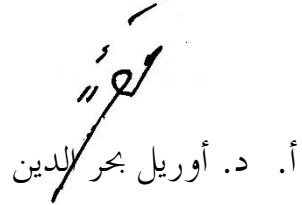 أ. د. أوريل بحر الدين